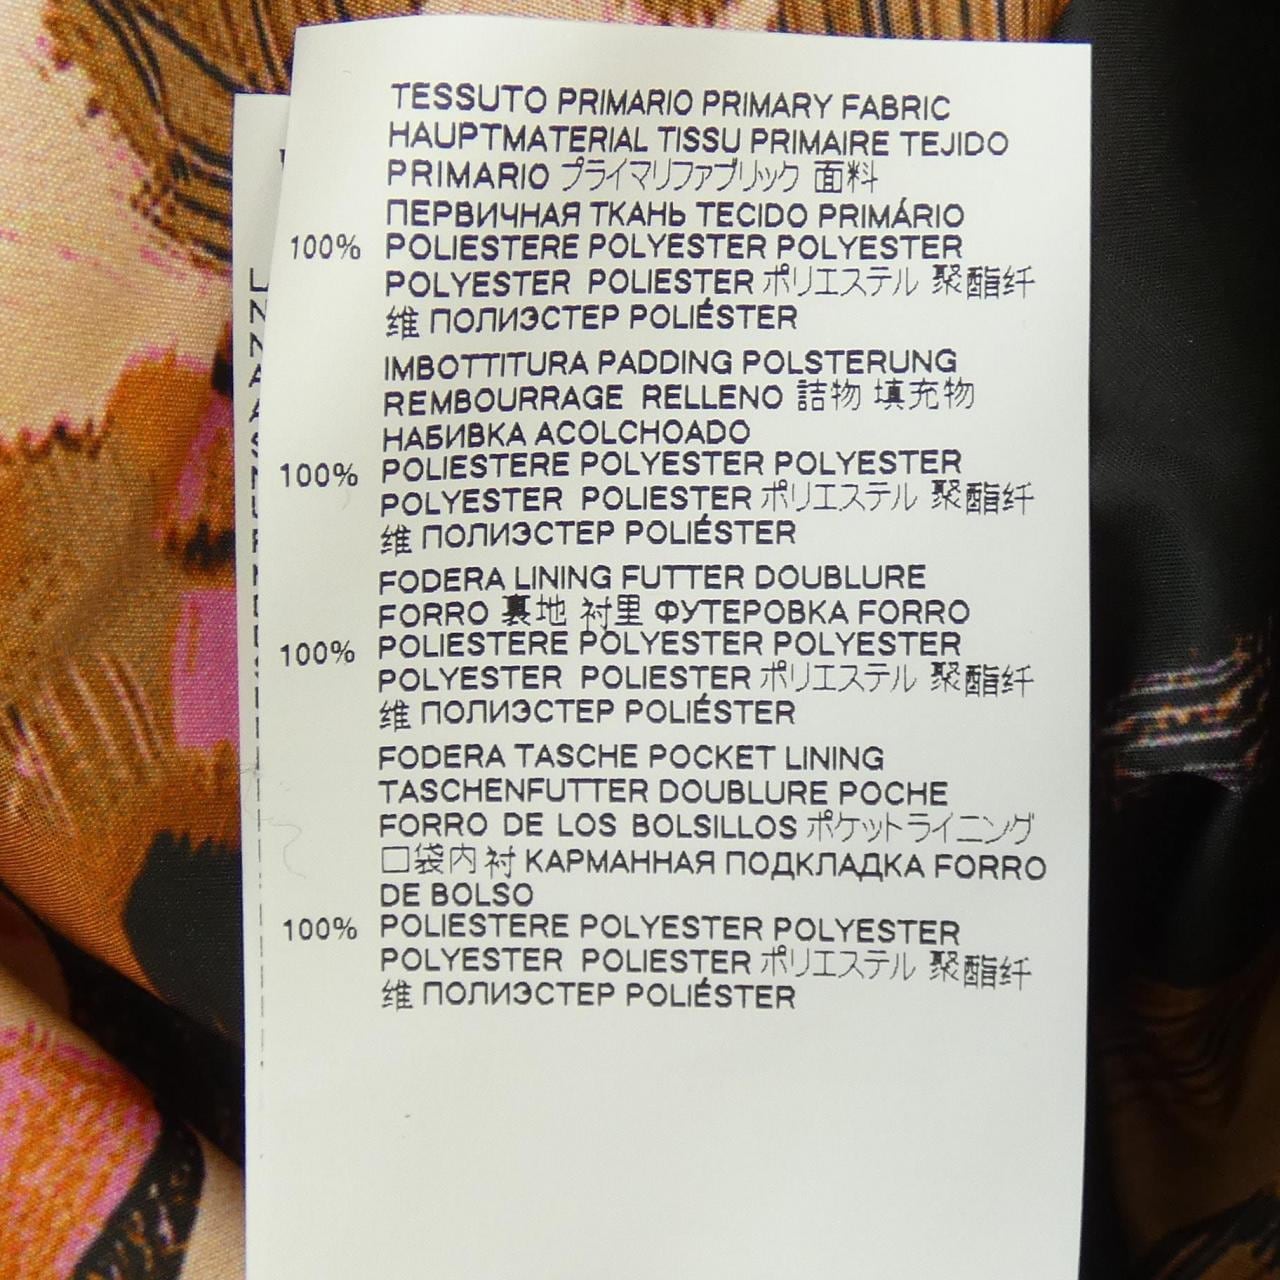 TESSUTO PRIMARIO PRIMARY FABRIC
HAUPTMATERIAL TISSU PRIMAIRE TEJIDO
PRIMARIO プライマリファブリック 面料
ПЕРВИЧНАЯ ТКАНЬ TECIDO PRIMÁRIO
100% POLIESTERE POLYESTER POLYESTER
POLYESTER POLIESTER ポリエステル 聚酯纤
维 ПОЛИЭСТЕР POLIÉSTER
IMBOTTITURA PADDING POLSTERUNG
REMBOURRAGE RELLENO 詰物 填充物
НАБИВКА ACOLCHOADO
100% POLIESTERE POLYESTER POLYESTER
POLYESTER POLIESTER ポリエステル 聚酯纤
维 ПОЛИЭСТЕР POLIÉSTER
FODERA LINING FUTTER DOUBLURE
FORRO 裏地 衬里 ФУТЕРОВКА FORRO
100% POLIESTERE POLYESTER POLYESTER
POLYESTER POLIESTER ポリエステル 聚酯纤
维 ПОЛИЭСТЕР POLIÉSTER
FODERA TASCHE POCKET LINING
TASCHENFUTTER DOUBLURE POCHE
FORRO DE LOS BOLSILLOS ポケットライニング
口袋内衬 КАРМАННАЯ ПОДКЛАДКА FORRO
DE BOLSO
100% POLIESTERE POLYESTER POLYESTER
POLYESTER POLIESTER ポリエステル 聚酯纤
维 ПОЛИЭСТЕР POLIÉSTER